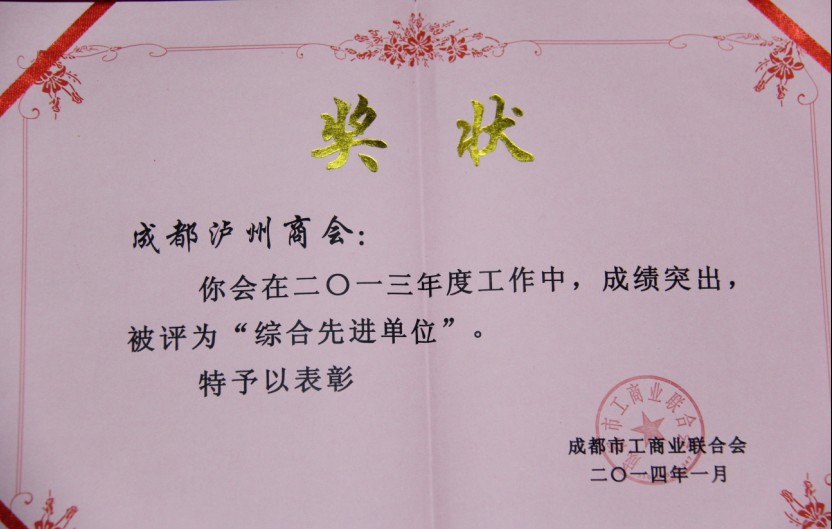 奖状
成都泸州商会：
你会在二〇一三年度工作中，成绩突出，
被评为“综合先进单位”。
特予以表彰
市工商业联合会
成都市工商业联合会
二〇一四年一月